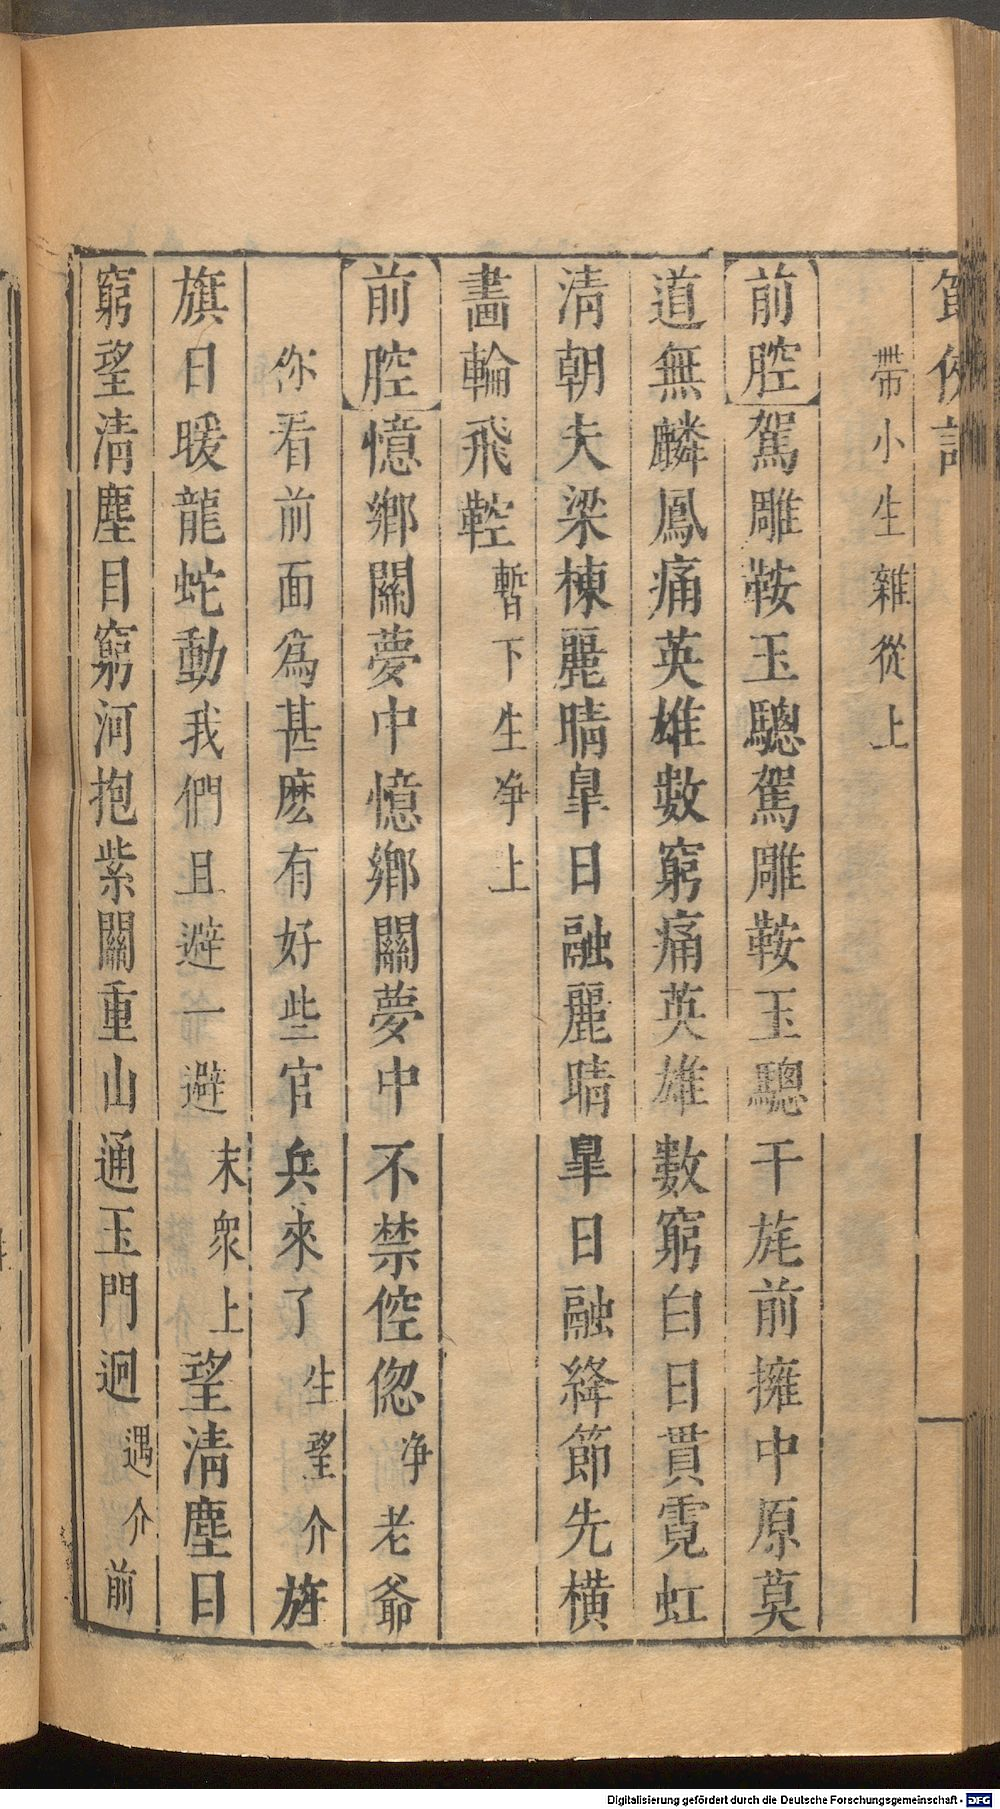 帶小生雜從上
前腔駕雕鞍玉驄駕雕鞍玉驄干旄前擁中原莫
道無麟鳳痛英雄數窮痛英雄數窮白日貫霓虹
清朝夫梁棟麗晴皐日融麗晴皐日融絳節先橫
畫輪飛鞚暫下生净上
前腔憶鄉關夢中憶鄉關夢中不禁倥偬净老爺
你看前面爲甚麽有好些官兵來了生望介旌
旗日暖龍蛇動我們且避一避末衆上望清塵日
窮望清塵目窮河抱紫關重山通玉門迥遇介前
Digitalisierung gefördert durch die Deutsche Forschungsgemeinschaft - DFG